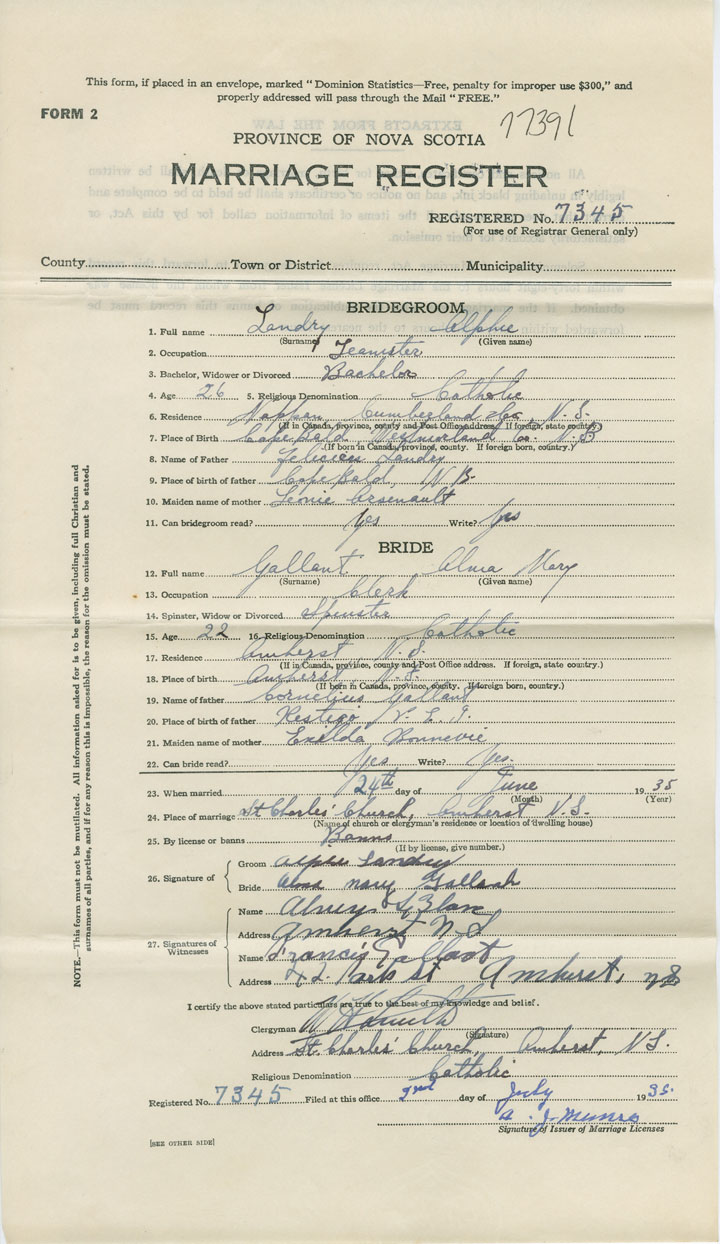 This form, if placed in an envelope, marked "Dominion Statistics—Free, penalty for improper use $300," and
properly addressed will pass through the Mail "FREE."
FORM 2
17391
PROVINCE OF NOVA SCOTIA
MARRIAGE REGISTER
REGISTERED No. 7345
(For use of Registrar General only)
County Town or District Municipality
BRIDEGROOM
1. Full name Landry Alphie
(Surname) (Given name)
2. Occupation Teamster
3. Bachelor, Widower or Divorced Bachelor
4. Age 26 5. Religious Denomination Catholic
6. Residence Nappan Cumberland Co. N.S.
(If in Canada, province, county and Post Office address. If foreign, state county)
7. Place of Birth Cape Bald Westmorland Co. N.B
(If born in Canada, province, county. If foreign born, country.)
8. Name of Father Felicien Landry
9. Place of birth of father Cape Bald, N B.
10. Maiden name of mother Leonie Arsenault
11. Can bridegroom read? Yes Write? Yes
BRIDE
12. Full name Gallant Alma Mary
(Surname) (Given name)
13. Occupation Clerk
14. Spinster, Widow or Divorced Spinster
15. Age 22 16. Religious Denomination Catholic
17. Residence Amherst N.S.
(If in Canada, province, county and Post Office address. If foreign, state country.)
18. Place of birth Amherst N.S.
(If born in Canada, province, county. If foreign born, country.)
19. Name of father Cornelius Gallant
20. Place of birth of father P.E.I.
21. Maiden name of mother Exelda Bonnevie
22. Can bride read? Yes Write? Yes.
23. When married 24th day of June 1935
(Month) (Year)
24. Place of marriage St Charles' Church, Amherst N.S.
(Name of church or clergyman's residence or location of dwelling house)
25. By license or banns Banns
(If by license, give number.)
26. Signature of Groom Alphie Landry
Bride Alma Mary Gallant
27. Signatures of Witnesses
Name
Address Amherst N S
Name Francis Gallant
Address Park St Amherst, NS
I certify the above stated particulars are true to the best of my knowledge and belief.
Clergyman
(Signature)
Address St. Charles' Church, Amherst, N.S.
Religious Denomination Catholic
Registered No. 7345 Filed at this office 2nd day of July 1935.
A. J. Munro
Signature of Issuer of Marriage Licenses
[SEE OTHER SIDE]
NOTE.—This form must not be mutilated. All information asked for is to be given, including full Christian and
surnames of all parties, and if for any reason this is impossible, the reason for the omission must be stated.